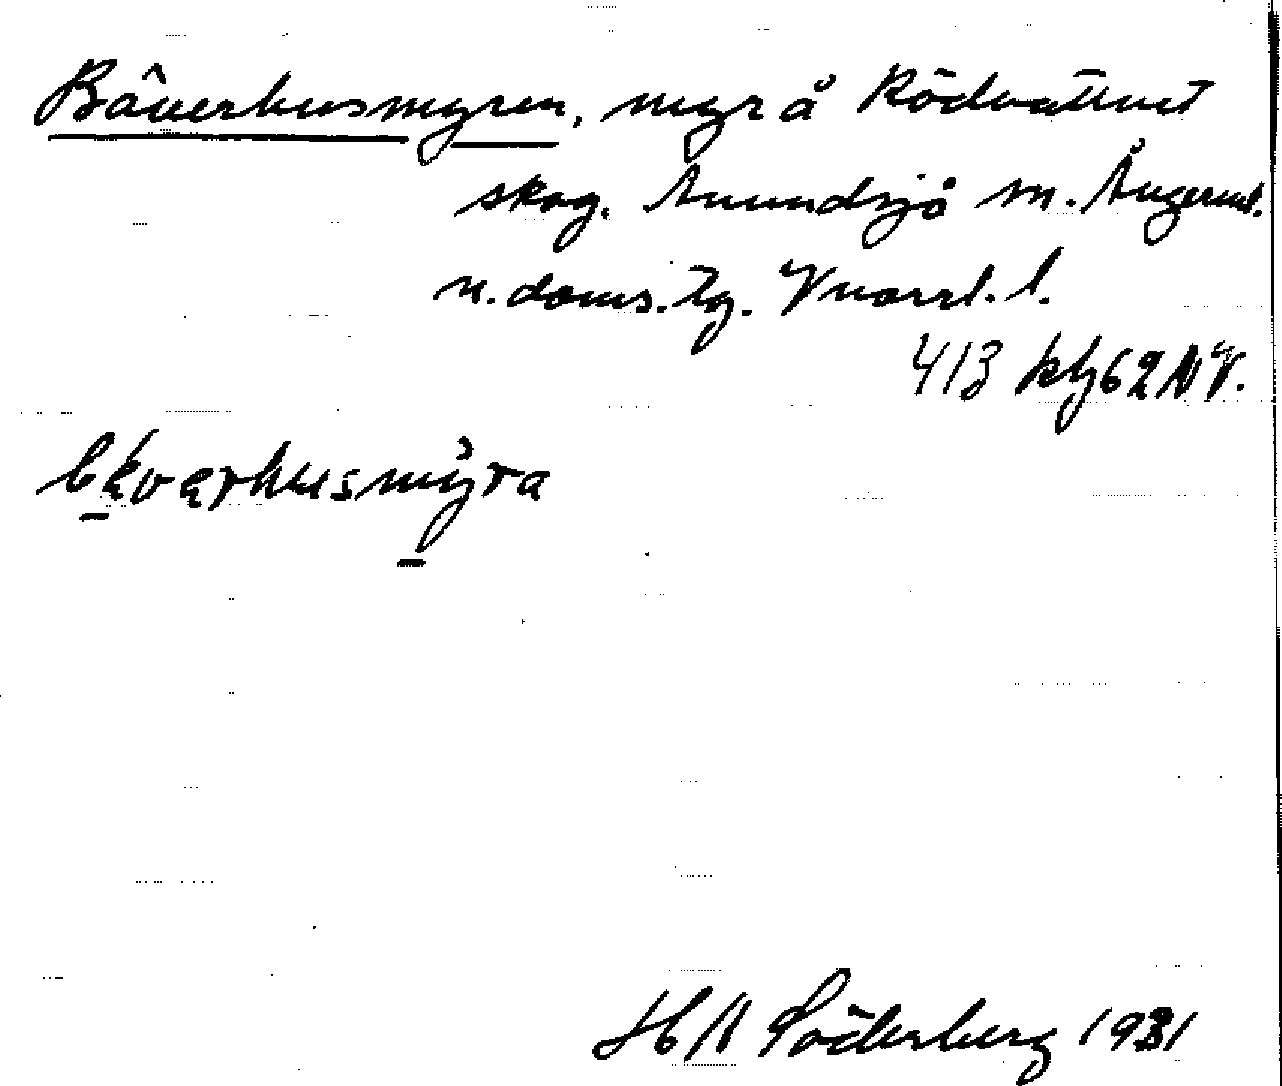 Bäverhusmyren, myr å Rödvattnet
skog. Anundsjö sn. Ångerml.
n. doms. tg. Vnorrl. l.
413 kbl 62 NV.
H A Söderberg 1931